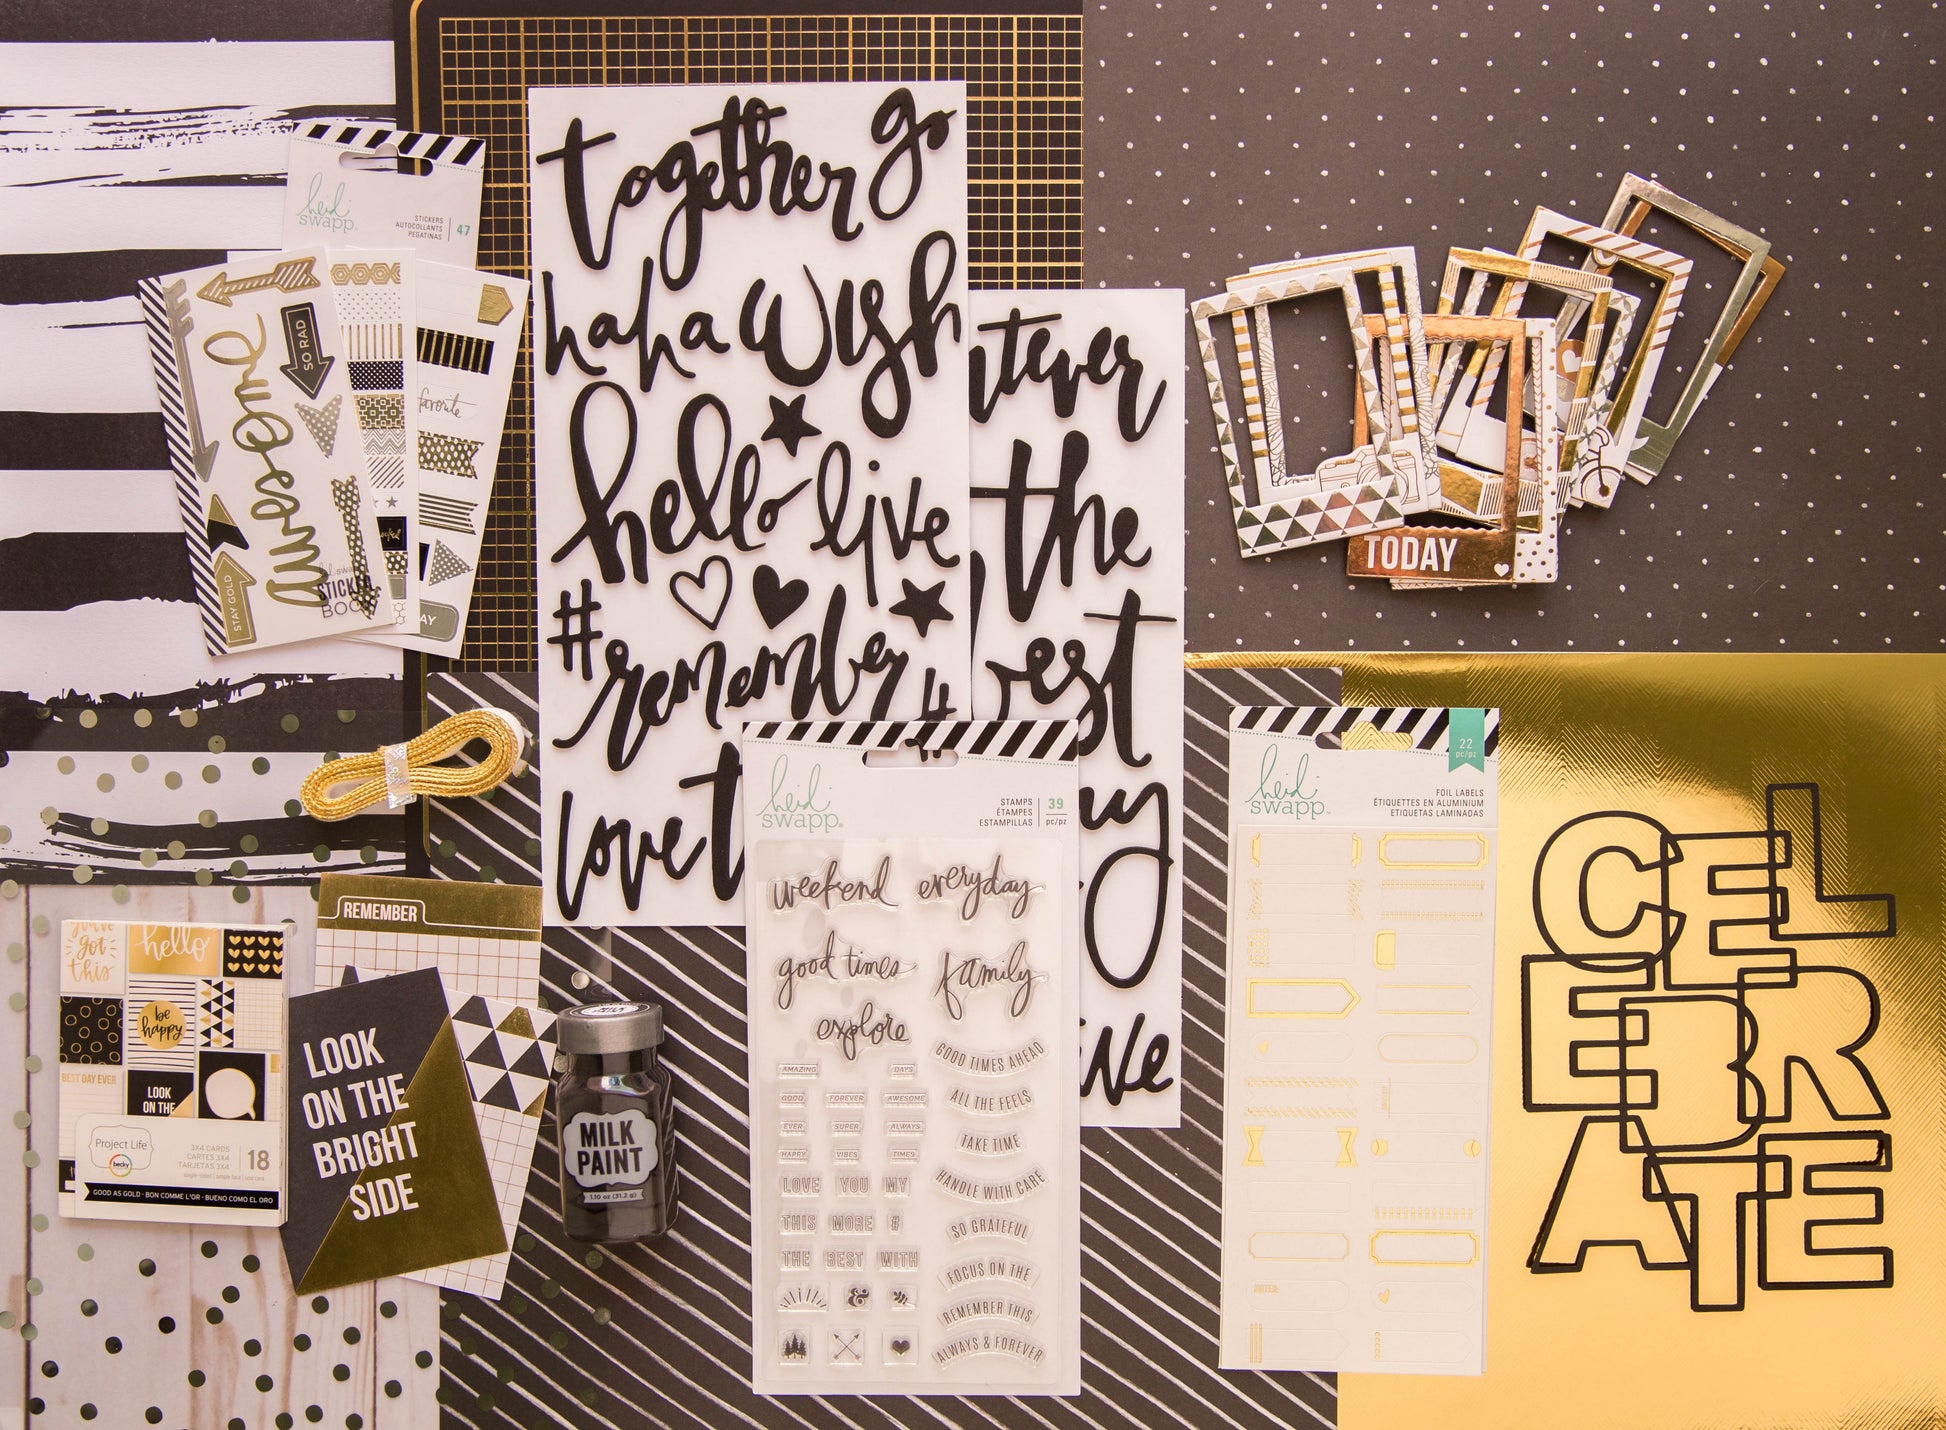 heidi
swapp
STICKERS
AUTOCOLLANTS
PEGATINAS
47
awesome
SO RAD
STAY GOLD
STICKER
BOOK
favorite
together go
haha wish
hello live
#remember
love
the
best
TODAY
heidi
swapp
STAMPS
ÉTAMPES
ESTAMPILLAS
39
pc/pz
weekend everyday
good times family
explore
AMAZING DAYS
GOOD FOREVER AWESOME
EVER SUPER ALWAYS
HAPPY VIBES TIMES
LOVE YOU MY
THIS MORE #
THE BEST WITH
&
GOOD TIMES AHEAD
ALL THE FEELS
TAKE TIME
HANDLE WITH CARE
SO GRATEFUL
FOCUS ON THE
REMEMBER THIS
ALWAYS & FOREVER
heidi
swapp
22
pc/pz
FOIL LABELS
ÉTIQUETTES EN ALUMINIUM
ETIQUETAS LAMINADAS
CEL
EBR
ATE
REMEMBER
you've
got
this
hello
be
happy
BEST DAY EVER
LOOK
ON THE
Project Life
becky
3X4 CARDS
CARTES 3X4
TARJETAS 3X4
18
GOOD AS GOLD • BON COMME L'OR • BUENO COMO EL ORO
LOOK
ON THE
BRIGHT
SIDE
MILK
PAINT
1.10 oz (31.2 g)